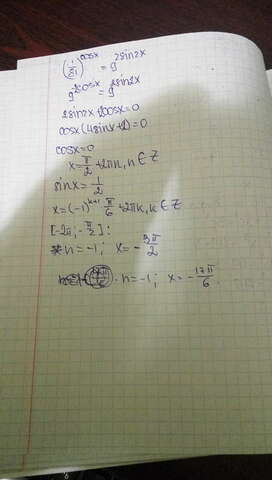 (1/81)^cosx = 9^2sin2x
9^-2cosx = 9^2sin2x
2sin2x+2cosx=0
cosx(4sinx+2)=0
cosx=0
x=π/2+2πn,n∈Z
sinx=1/2
x=(-1)^k+1 π/6+2πk,k∈Z
[-2π;-π/2]:
n=-1; x=-3π/2
n=-1; x=-17π/6